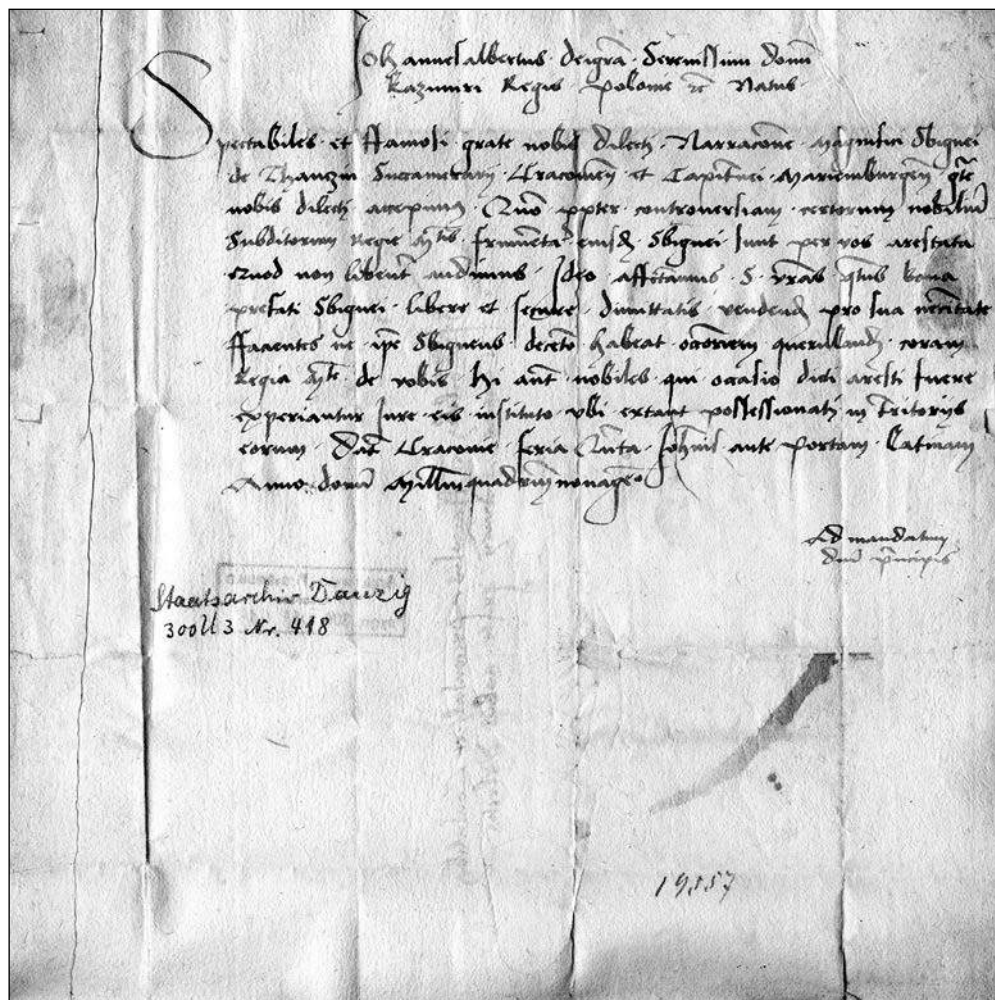 Johannesalbertus deigra Serenissimi domi
Kazimiri Regis Polonie etc Natus
Spectabiles et ffamosi grate nobis dilecti Narracone Magnifici Sbignei
de Thanczin Succamerarij Cracovien et Capitanei Mariemburgen gte
nobis dilecti accepimus Quo ppter controversiam certorum nobiliu
Subditorum Regie Mtis frumeta eiusd Sbignei sunt per vos arestata
Quod non libent audivimus Ideo affectamus S vras qtus bona
prefati Sbignei libere et secure dimittatis vendend pro sua necitate
ffacientes ne ipe Sbigneus deceto habeat querulland coram
Regia Mte de vobis Hi aut nobiles qui occasio dicti aresti fuere
experiantur Jure eis instituto ubi extant possessionati in Tritorijs
eorum Dat Cracovie feria Qnta Johnis ante Portam Latinam
Anno domi Millmoquadrinnonageo
Ad mandatum
dni principis
Staatsarchiv Danzig
300U 3 Nr. 418
19557